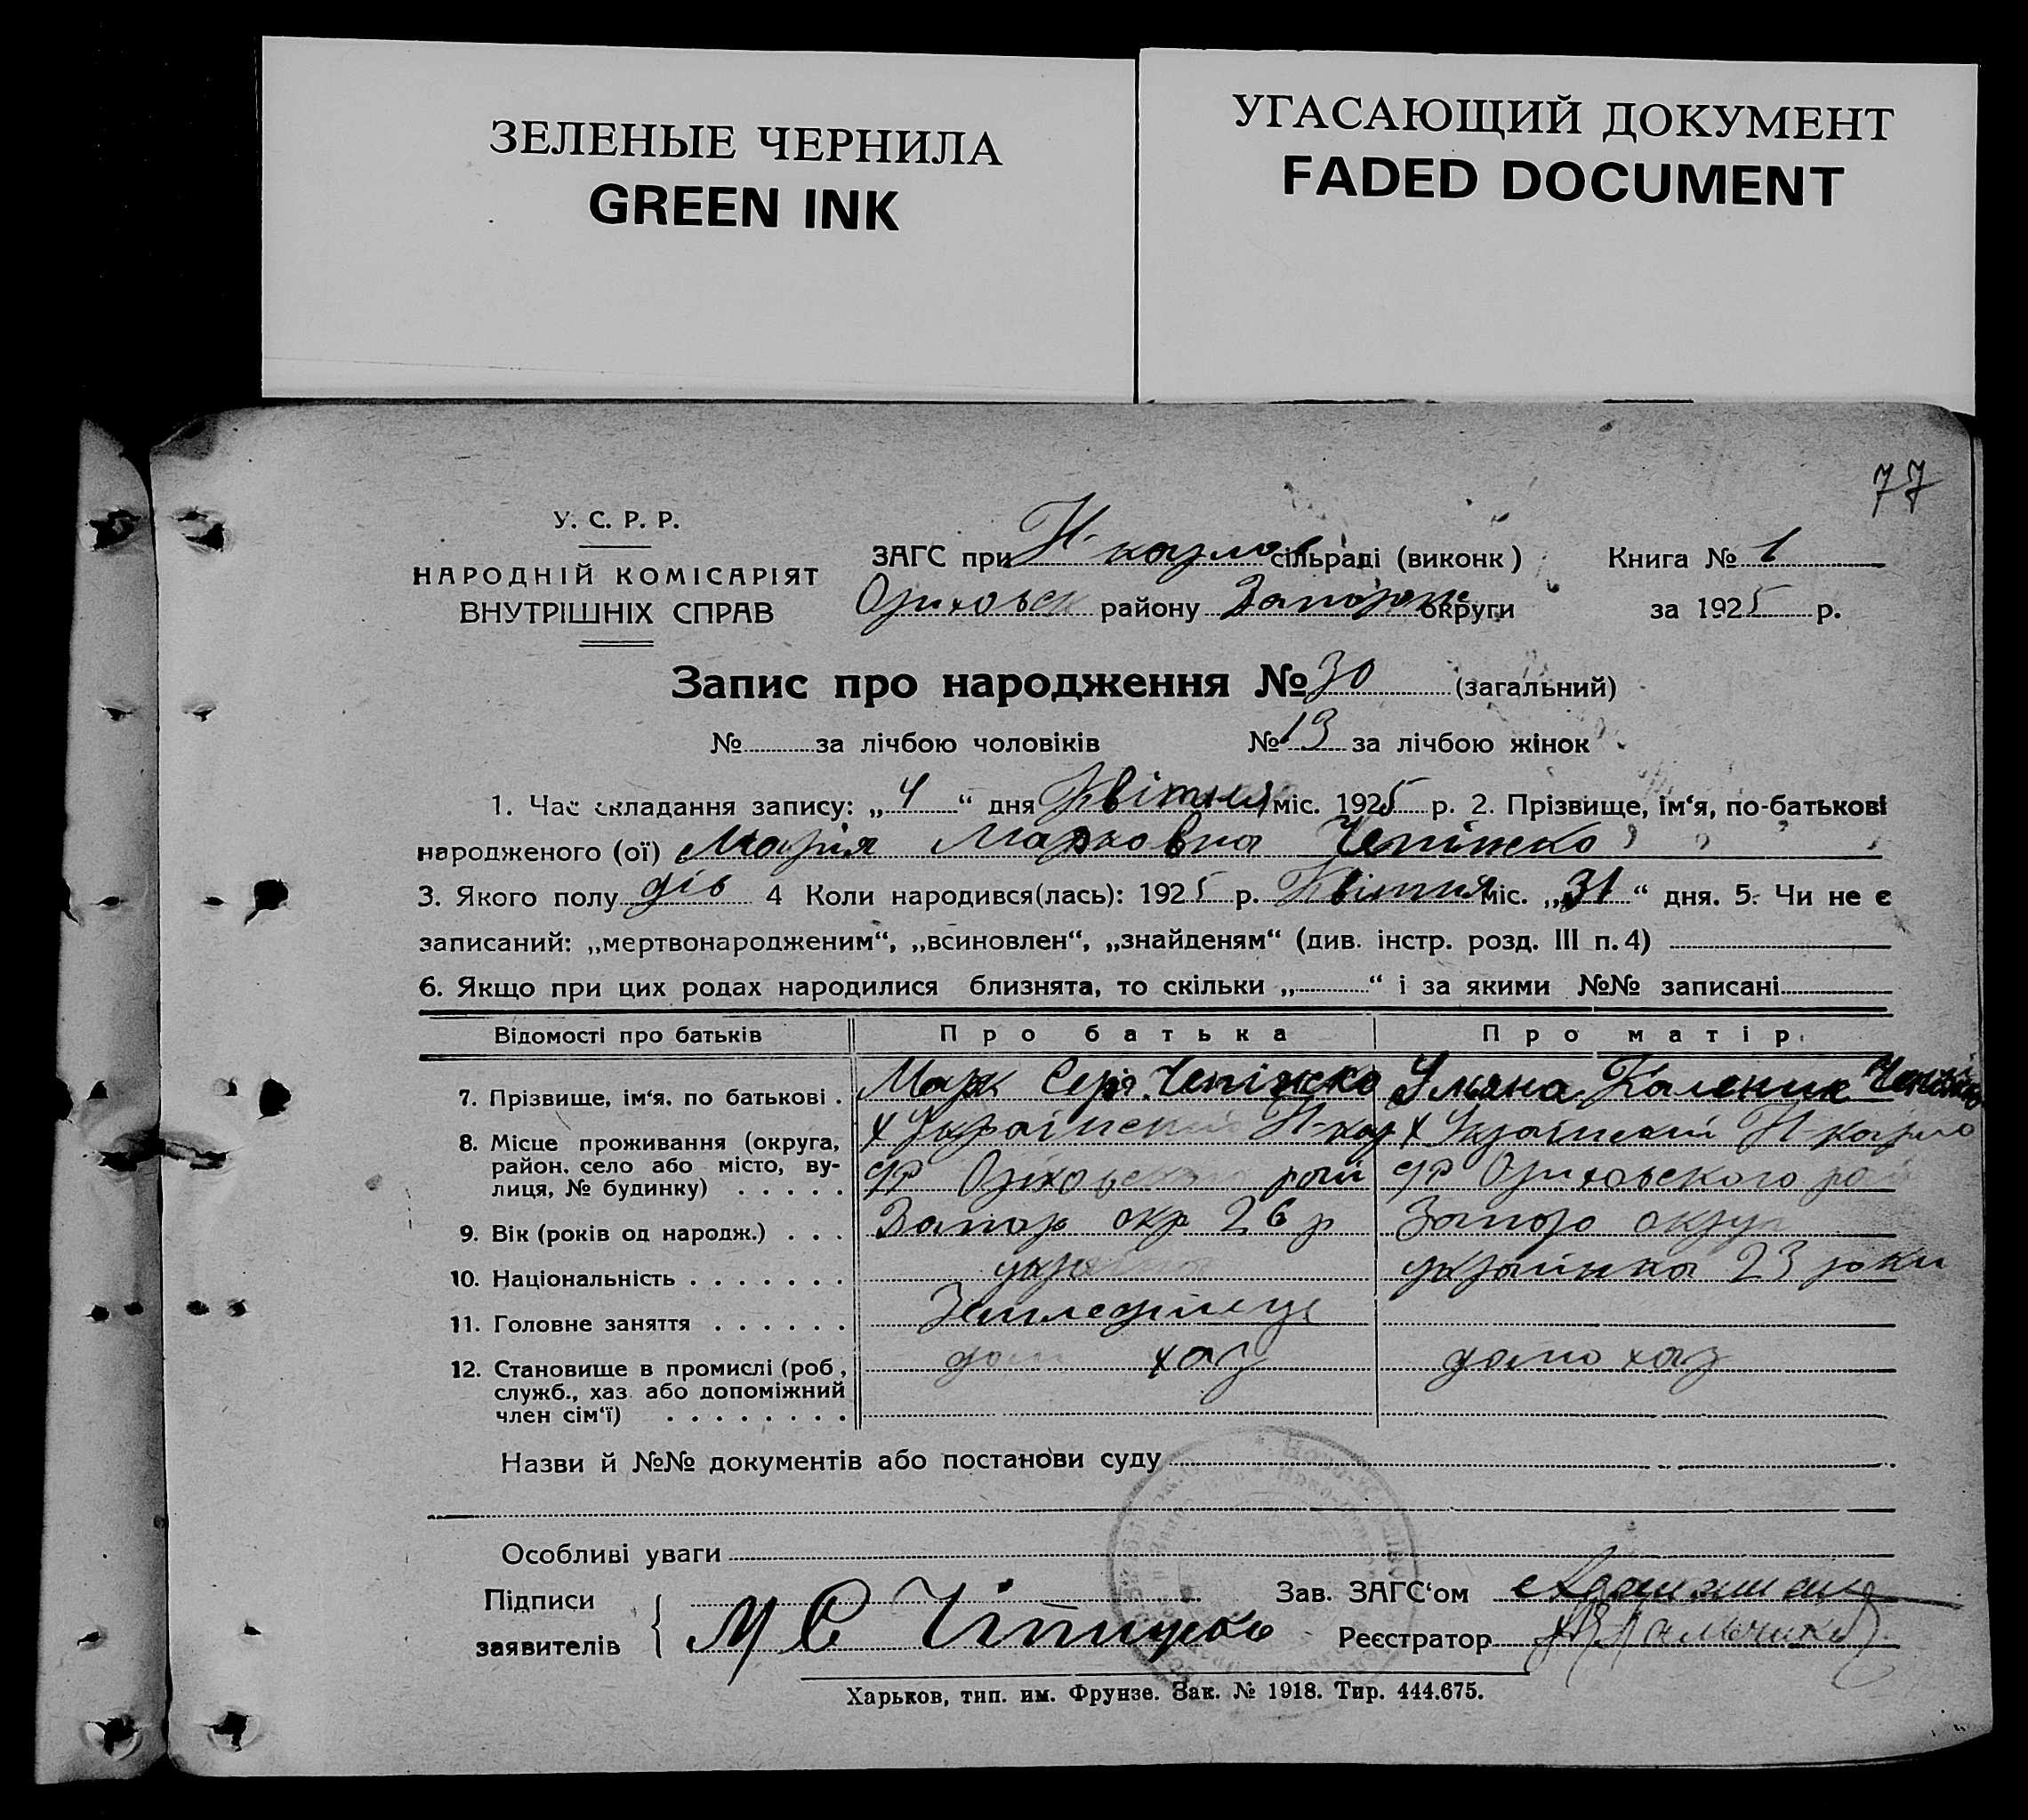 ЗЕЛЕНЫЕ ЧЕРНИЛА
GREEN INK
УГАСАЮЩИЙ ДОКУМЕНТ
FADED DOCUMENT
77
У. С. Р. Р.
НАРОДНІЙ КОМІСАРІЯТ
ВНУТРІШНІХ СПРАВ
ЗАГС при Н-карлов сільраді (виконк) Книга № 1
Оріховськ району Запоріж округи за 1925 р.
Запис про народження № 30 (загальний)
№ за лічбою чоловіків № 13 за лічбою жінок
1. Час складання запису: „4“ дня Квітня міс. 1925 р. 2. Прізвище, ім‘я, по-батькові
народженого (ої) Марія Марковна Чепіжко
3. Якого полу дів 4 Коли народився(лась): 1925 р. Квітня міс. „31“ дня. 5. Чи не є
записаний: „мертвонародженим“, „всиновлен“, „знайденям“ (див. інстр. розд. III п. 4)
6. Якщо при цих родах народилися близнята, то скільки „ “ і за якими №№ записані
Відомості про батьків Про батька Про матір
7. Прізвище, ім‘я, по батькові . Марк Сергі. Чепіжко Уляна Каленик Чепіжко
8. Місце проживання (округа, район, село або місто, ву-
лиця, № будинку) . . . . .
х Український Н-кар х Український Н-карло
Оріховського рай Оріховського рай
9. Вік (років од народж.) . . . Запор окр 26 р Запор округ
10. Національність . . . . . . . україн українка 23 роки
11. Головне заняття . . . . . . Земледілець
12. Становище в промислі (роб., хаз домохаз
служб., хаз. або допоміжний
член сім‘ї) . . . . . . . .
Назви й №№ документів або постанови суду
Особливі уваги
Підписи Зав. ЗАГС‘ом
заявителів М С Чіпижко Реєстратор
Харьков, тип. им. Фрунзе. Зак. № 1918. Тир. 444.675.